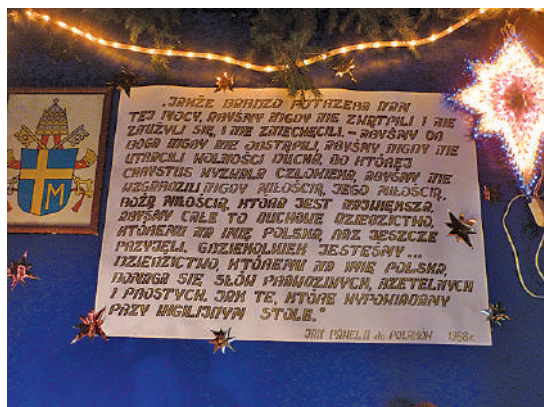 „JAKŻE BARDZO POTRZEBA NAM
TEJ MOCY, ABYŚMY NIGDY NIE ZWĄTPILI I NIE
ZNUŻYLI SIĘ, I NIE ZNIECHĘCILI. – ABYŚMY OD
BOGA NIGDY NIE ODSTĄPILI, ABYŚMY NIGDY NIE
UTRACILI WOLNOŚCI DUCHA, DO KTÓREJ
CHRYSTUS WYZWALA CZŁOWIEKA, ABYŚMY NIE
WZGARDZILI NIGDY MIŁOŚCIĄ, JEGO MIŁOŚCIĄ,
BOŻĄ MIŁOŚCIĄ, KTÓRA JEST NAJWIĘKSZA,
ABYŚMY CAŁE TO DUCHOWE DZIEDZICTWO,
KTÓREMU NA IMIĘ POLSKA, RAZ JESZCZE
PRZYJĘLI, GDZIEKOLWIEK JESTEŚMY ...
DZIEDZICTWO, KTÓREMU NA IMIĘ POLSKA,
DOMAGA SIĘ SŁÓW PRAWDZIWYCH, RZETELNYCH
I PROSTYCH, JAK TE, KTÓRE WYPOWIADAMY
PRZY WIGILIJNYM STOLE."
JAN PAWEŁ II do POLAKÓW 1988 r.
M